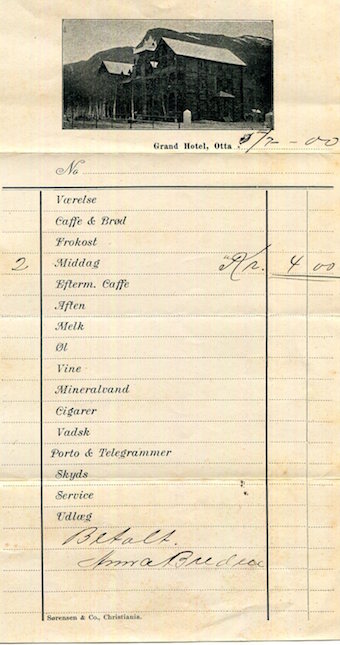 Grand Hotel, Otta 5/7 - 00
No
Værelse
Caffe & Brød
Frokost
2 Middag "Kr. 4 00
Efterm. Caffe
Aften
Melk
Øl
Vine
Mineralvand
Cigarer
Vadsk
Porto & Telegrammer
Skyds
Service
Udlæg
Betalt.
Anna
Sørensen & Co., Christiania.